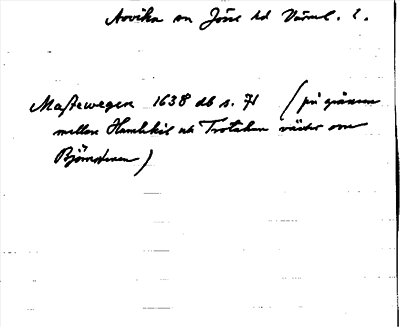 Arvika sn Jösse hd Värml. l.
Mastewegen 1638 db s. 71 (på gränsen
mellan Hamlekil och Trotakan väster om
Björnstenen)